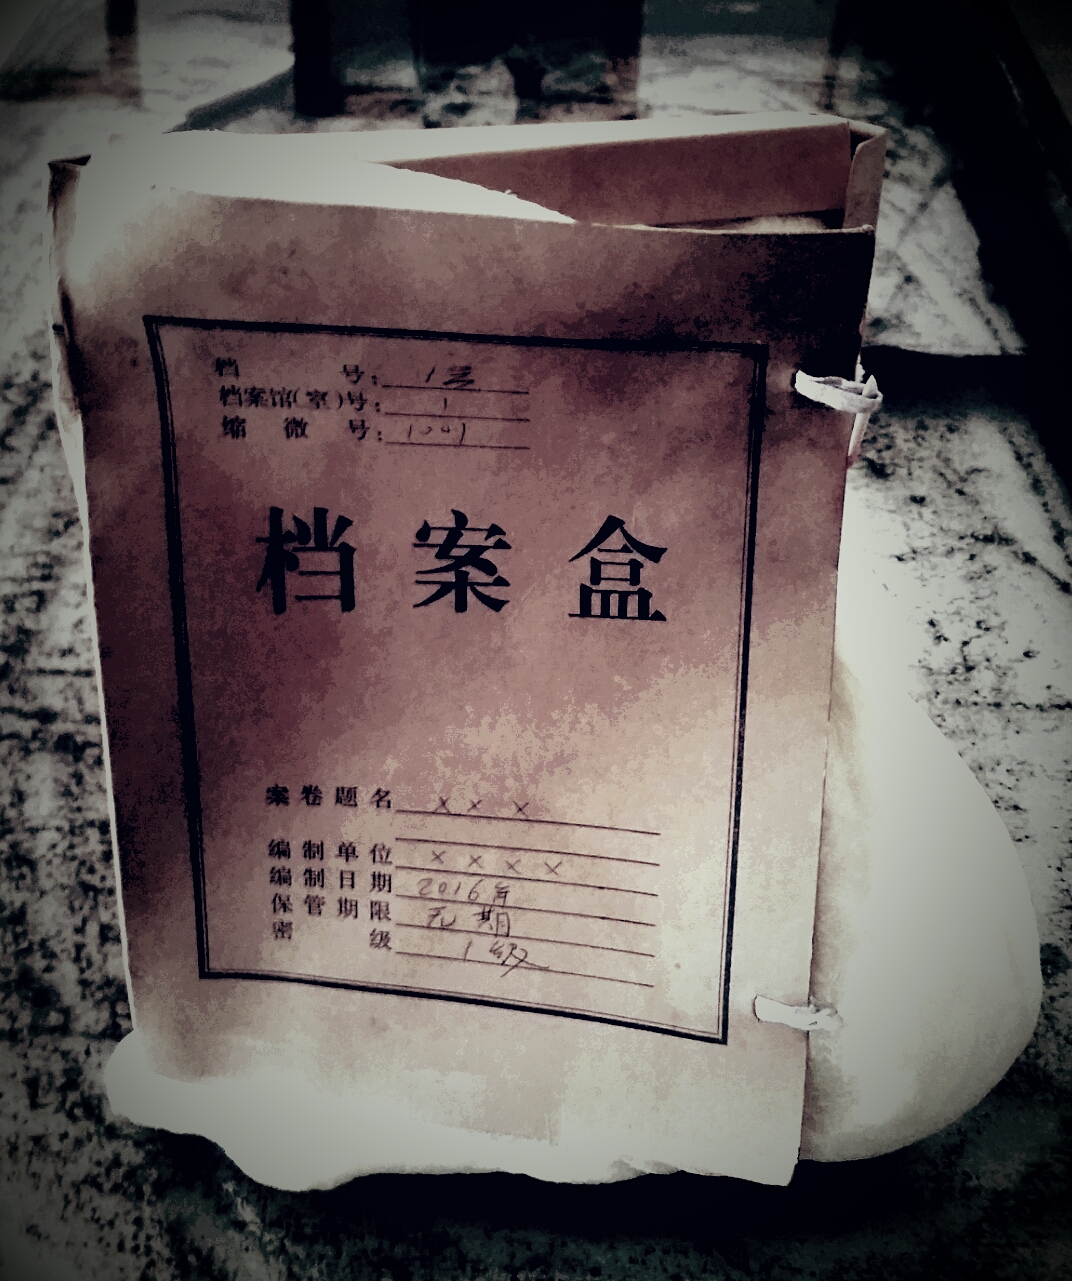 档 号：1号
档案馆(室)号：1
缩 微 号：1001
档案盒
案卷题名 ×× ×
编制单位 ××××
编制日期 2016年
保管期限 无期
密 级 1级